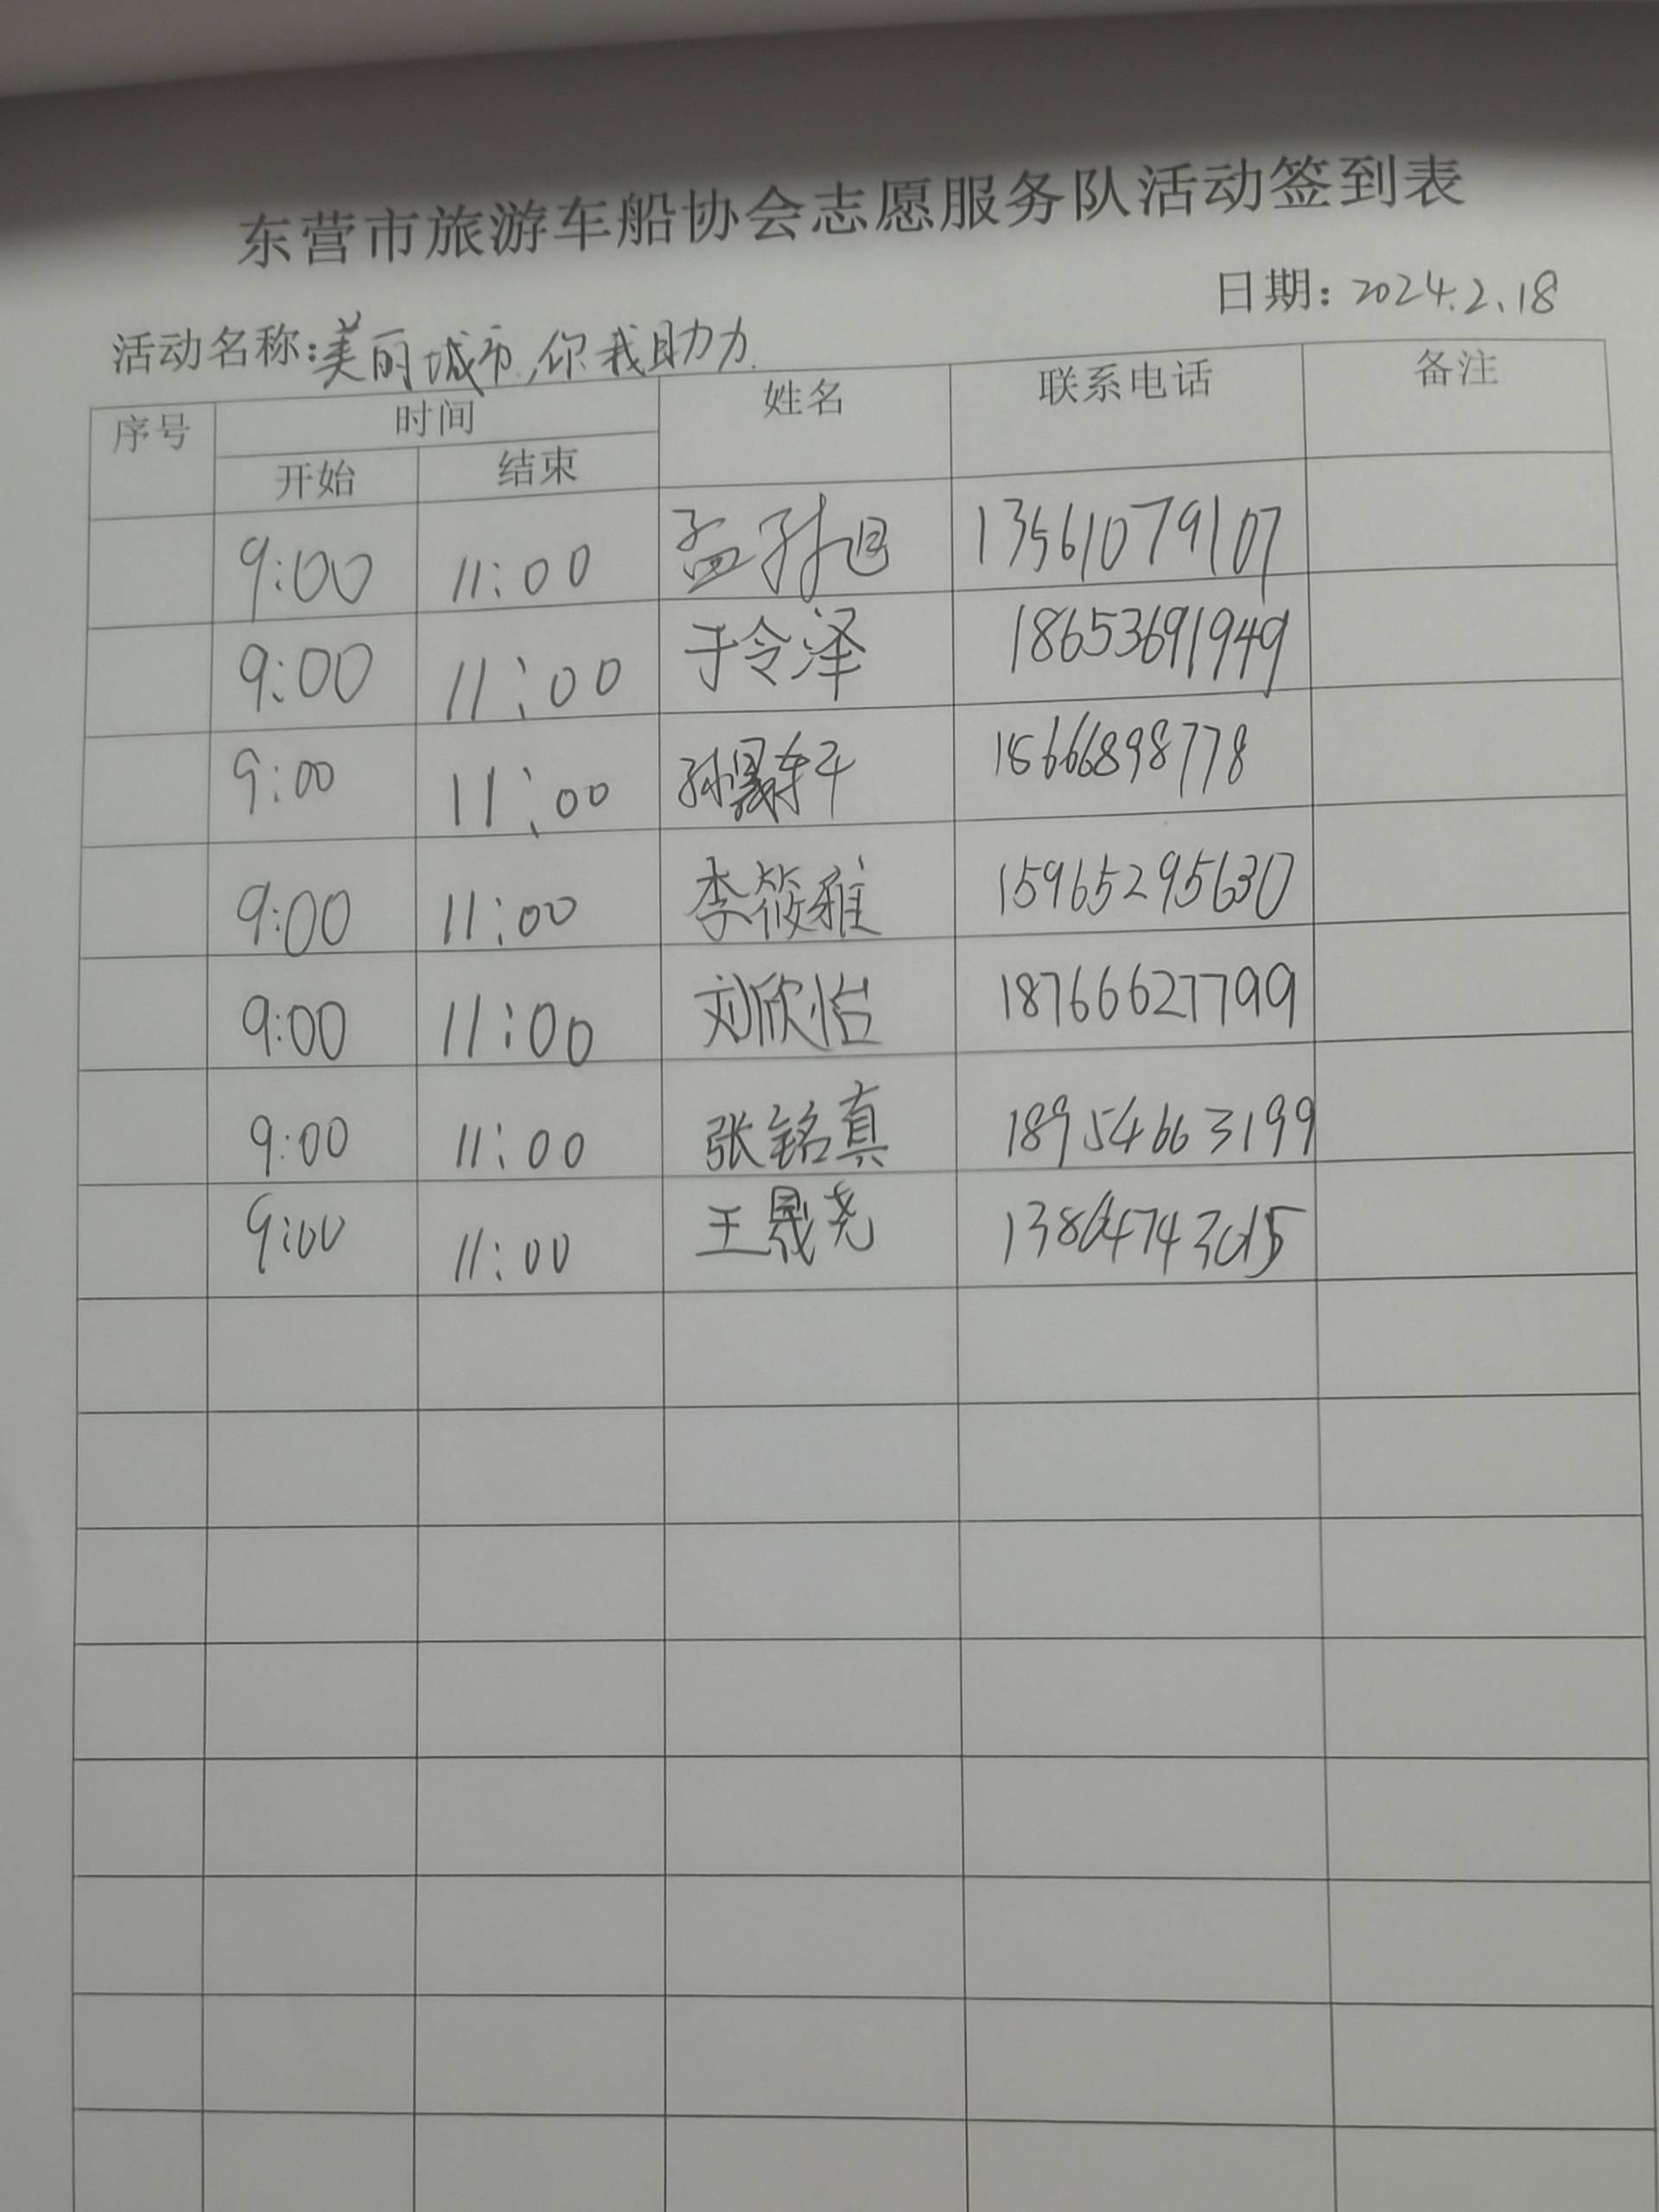 东营市旅游车船协会志愿服务队活动签到表
日期：2024.2.18
活动名称：美丽城市，你我助力
序号 时间 姓名 联系电话 备注
开始 结束
9:00 11:00 孟 13561079107
9:00 11:00 于令泽 18653691949
9:00 11:00 孙晟轩 15666898778
9:00 11:00 李筱雅 15965295630
9:00 11:00 刘欣怡 18766627799
9:00 11:00 张铭真 18954663199
9:00 11:00 王晟尧